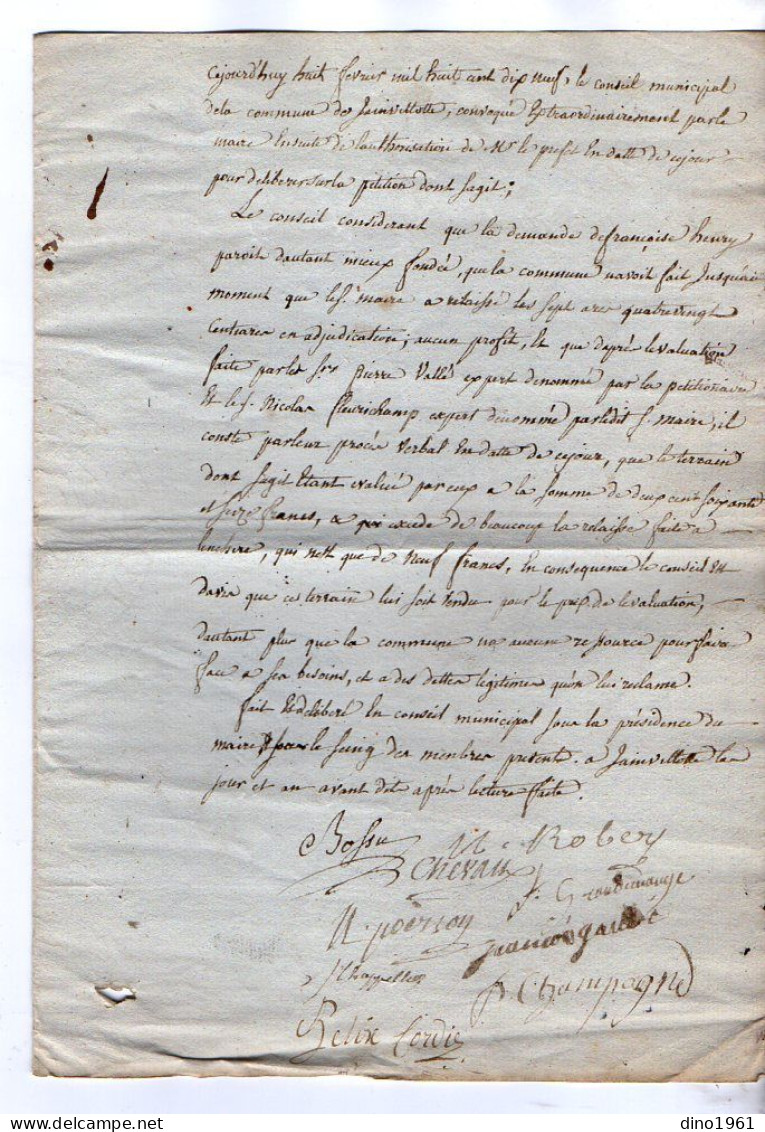 cejourd'huy huit fevrier mil huit cent dix neuf, le conseil municipal
dela commune de Jainvillotte, convoqué Extraordinairement parle
maire Ensuite de lauthorisation de Mr le prefet En datte de cejour
pour deliberer sur la petition dont sagit;
Le conseil considerant que la demande defrançoise henry
paroit dautant mieux fondée, que la commune navoit fait Jusquàu
moment que les. maire a relaissé les sept ares quatrevingt
Centiares en adjudication; aucun profit, Et que daprè levaluation
faite parles Srs pierre Vallé expert denommé par la petitionaire
Et les. Nicolas fleurichamp expert denommé parledit s. maire, il
conste parleur procée verbal En datte de cejour, que le terrain
dont sagit Etant evalué par eux a la somme de deux cent soixante
et seize francs, excede de beaucoup la relaisse faite a
lenchere, qui nest que de Neuf francs, En consequence le conseil Est
davis que ce terrain lui soit vendu pour le prix de levaluation,
dautant plus que la commune na aucune ressource pour faire
face a ses besoins, et a des dettes légitimes qu'on lui reclame.
fait Et deliberé En conseil municipal sous la présidence du
maire sous le seing des membres presents. a Jainvillotte les
jour et an avant dit après lecture faite.
Bossu
N Robert
chevaux
J. Grandemange
N poirson
francois gaulot
Chappelle
P Champagne
Felix Cordie
dino1961